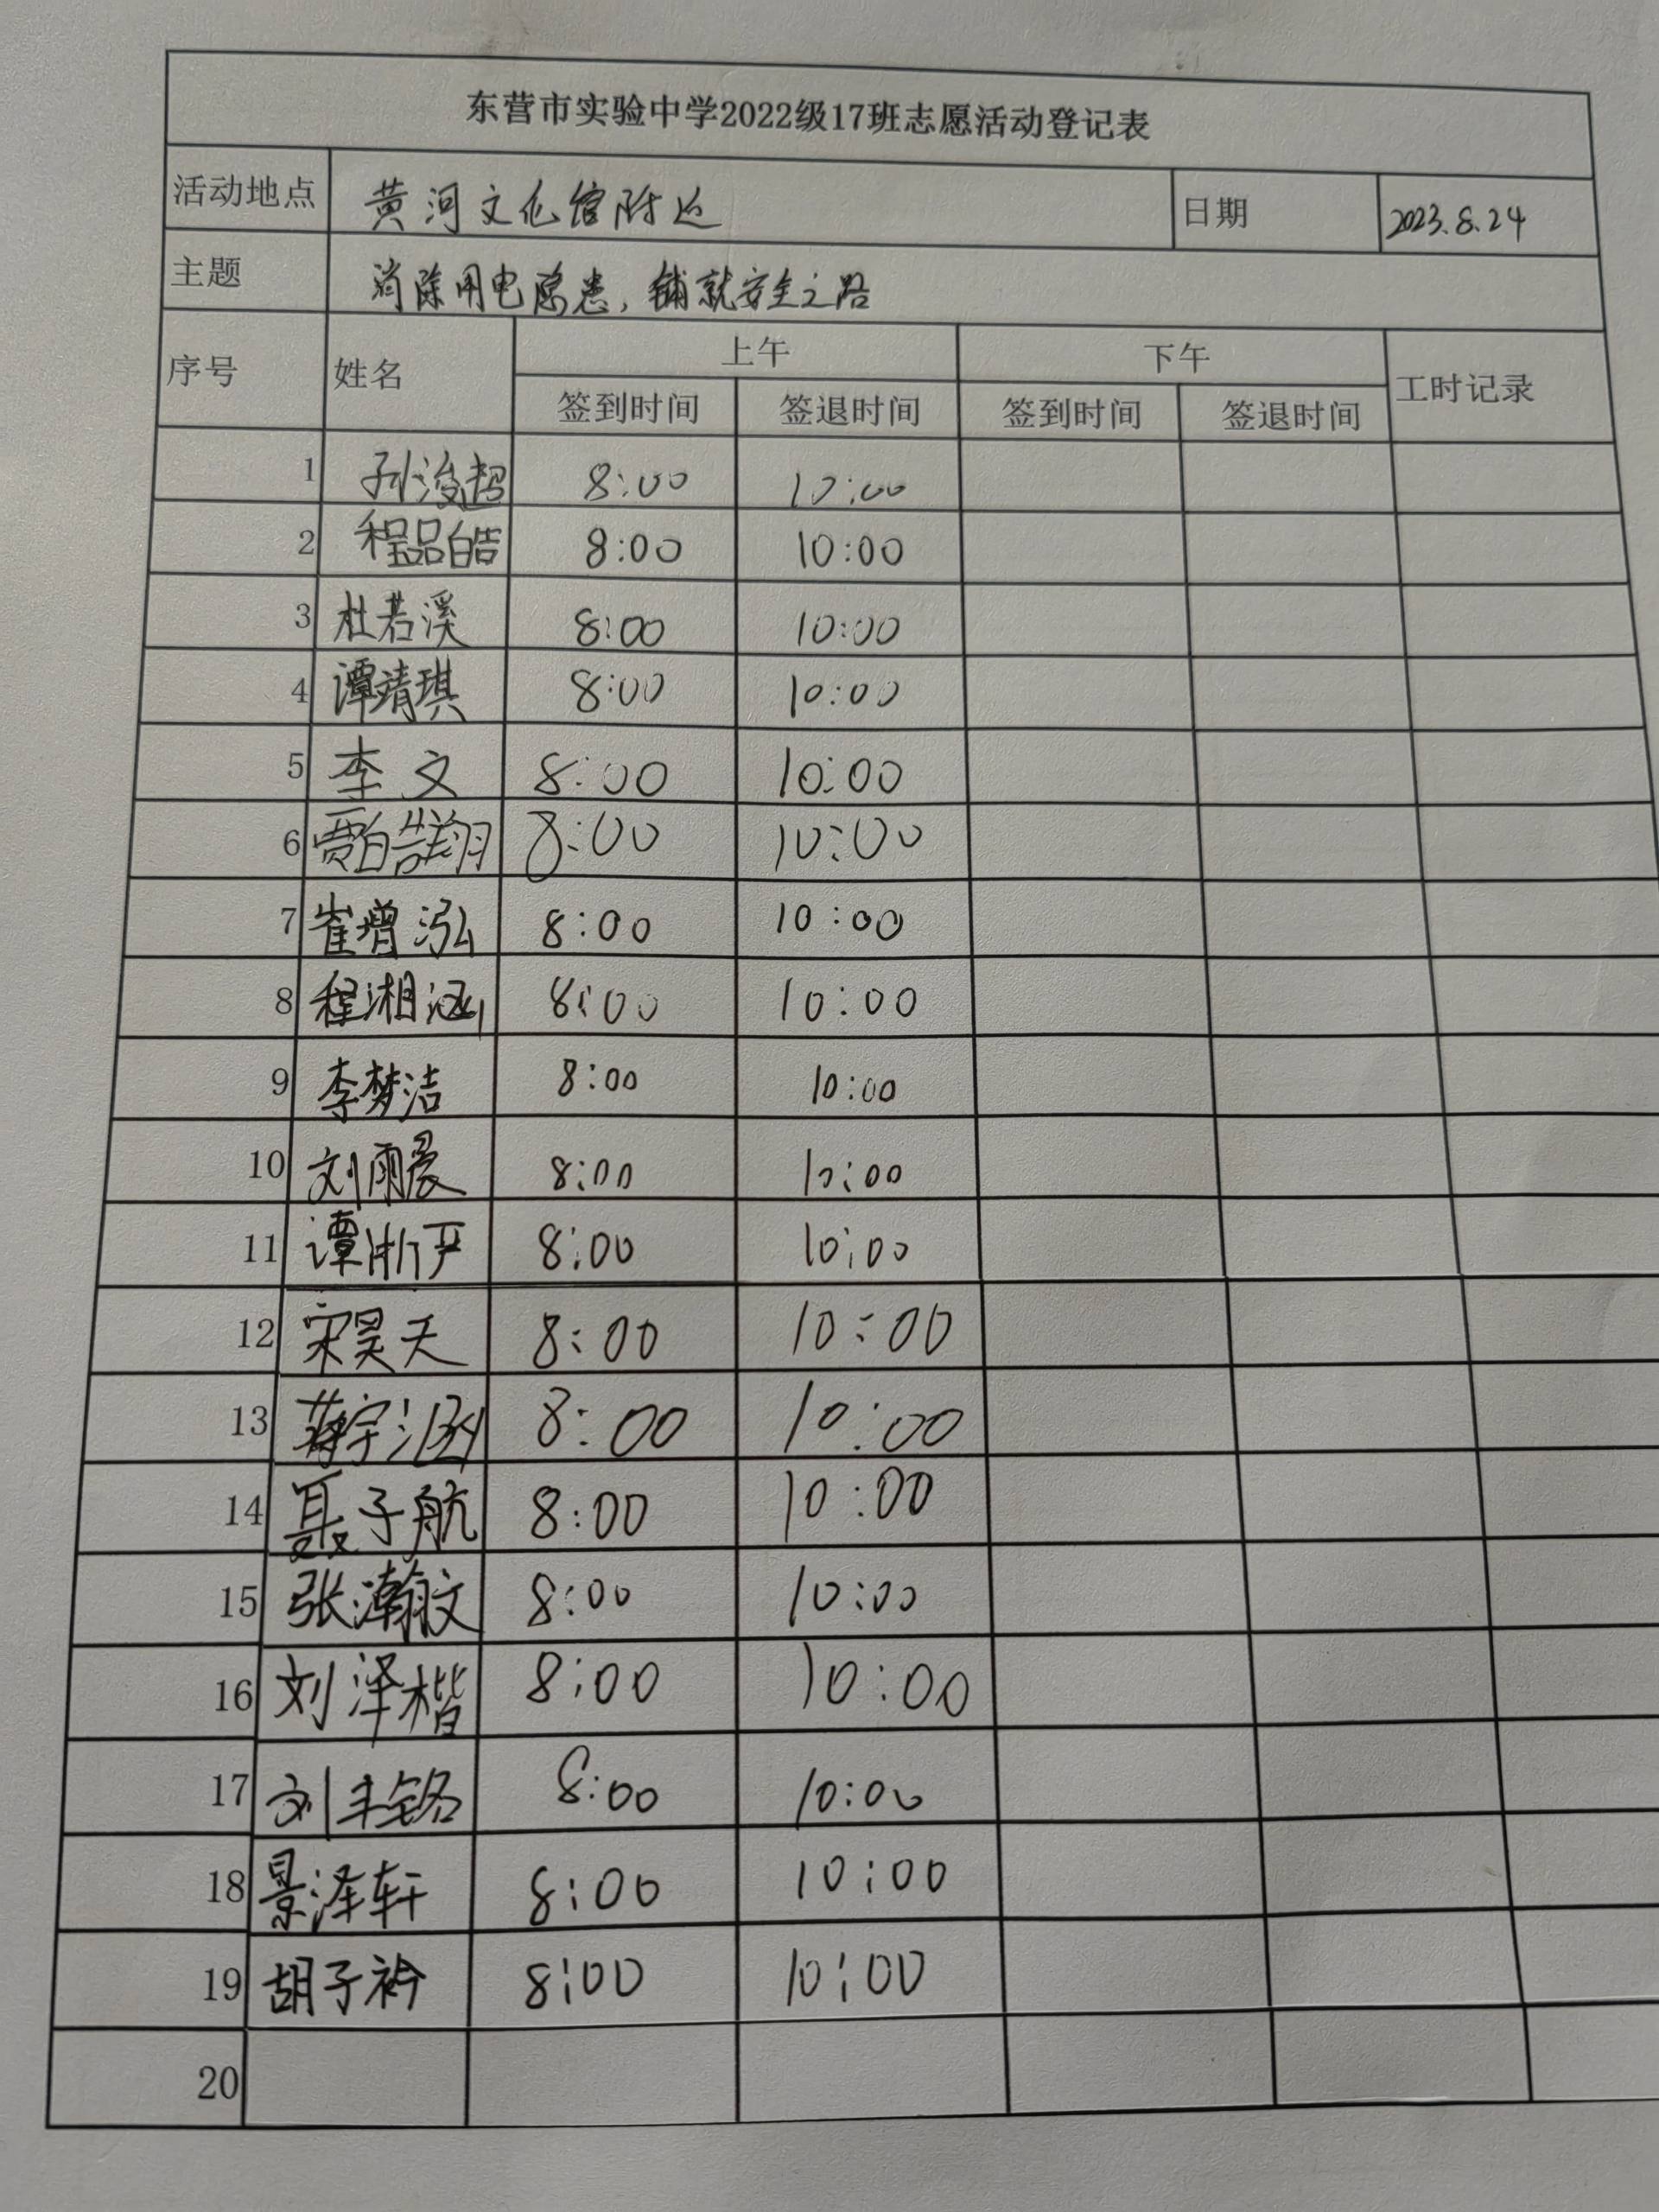 东营市实验中学2022级17班志愿活动登记表
活动地点 黄河文化馆附近 日期 2023.8.24
主题 消除用电隐患，铺就安全之路
序号 姓名 上午 下午 工时记录
签到时间 签退时间 签到时间 签退时间
1 孙浚超 8:00 10:00
2 程品皓 8:00 10:00
3 杜若溪 8:00 10:00
4 谭靖琪 8:00 10:00
5 李文 8:00 10:00
6 贾皓翔 8:00 10:00
7 崔增泓 8:00 10:00
8 程湘涵 8:00 10:00
9 李梦洁 8:00 10:00
10 刘雨晨 8:00 10:00
11 8:00 10:00
12 宋昊天 8:00 10:00
13 蒋宇涵 8:00 10:00
14 聂子航 8:00 10:00
15 张瀚文 8:00 10:00
16 刘泽楷 8:00 10:00
17 刘丰铭 8:00 10:00
18 景泽轩 8:00 10:00
19 胡子衿 8:00 10:00
20